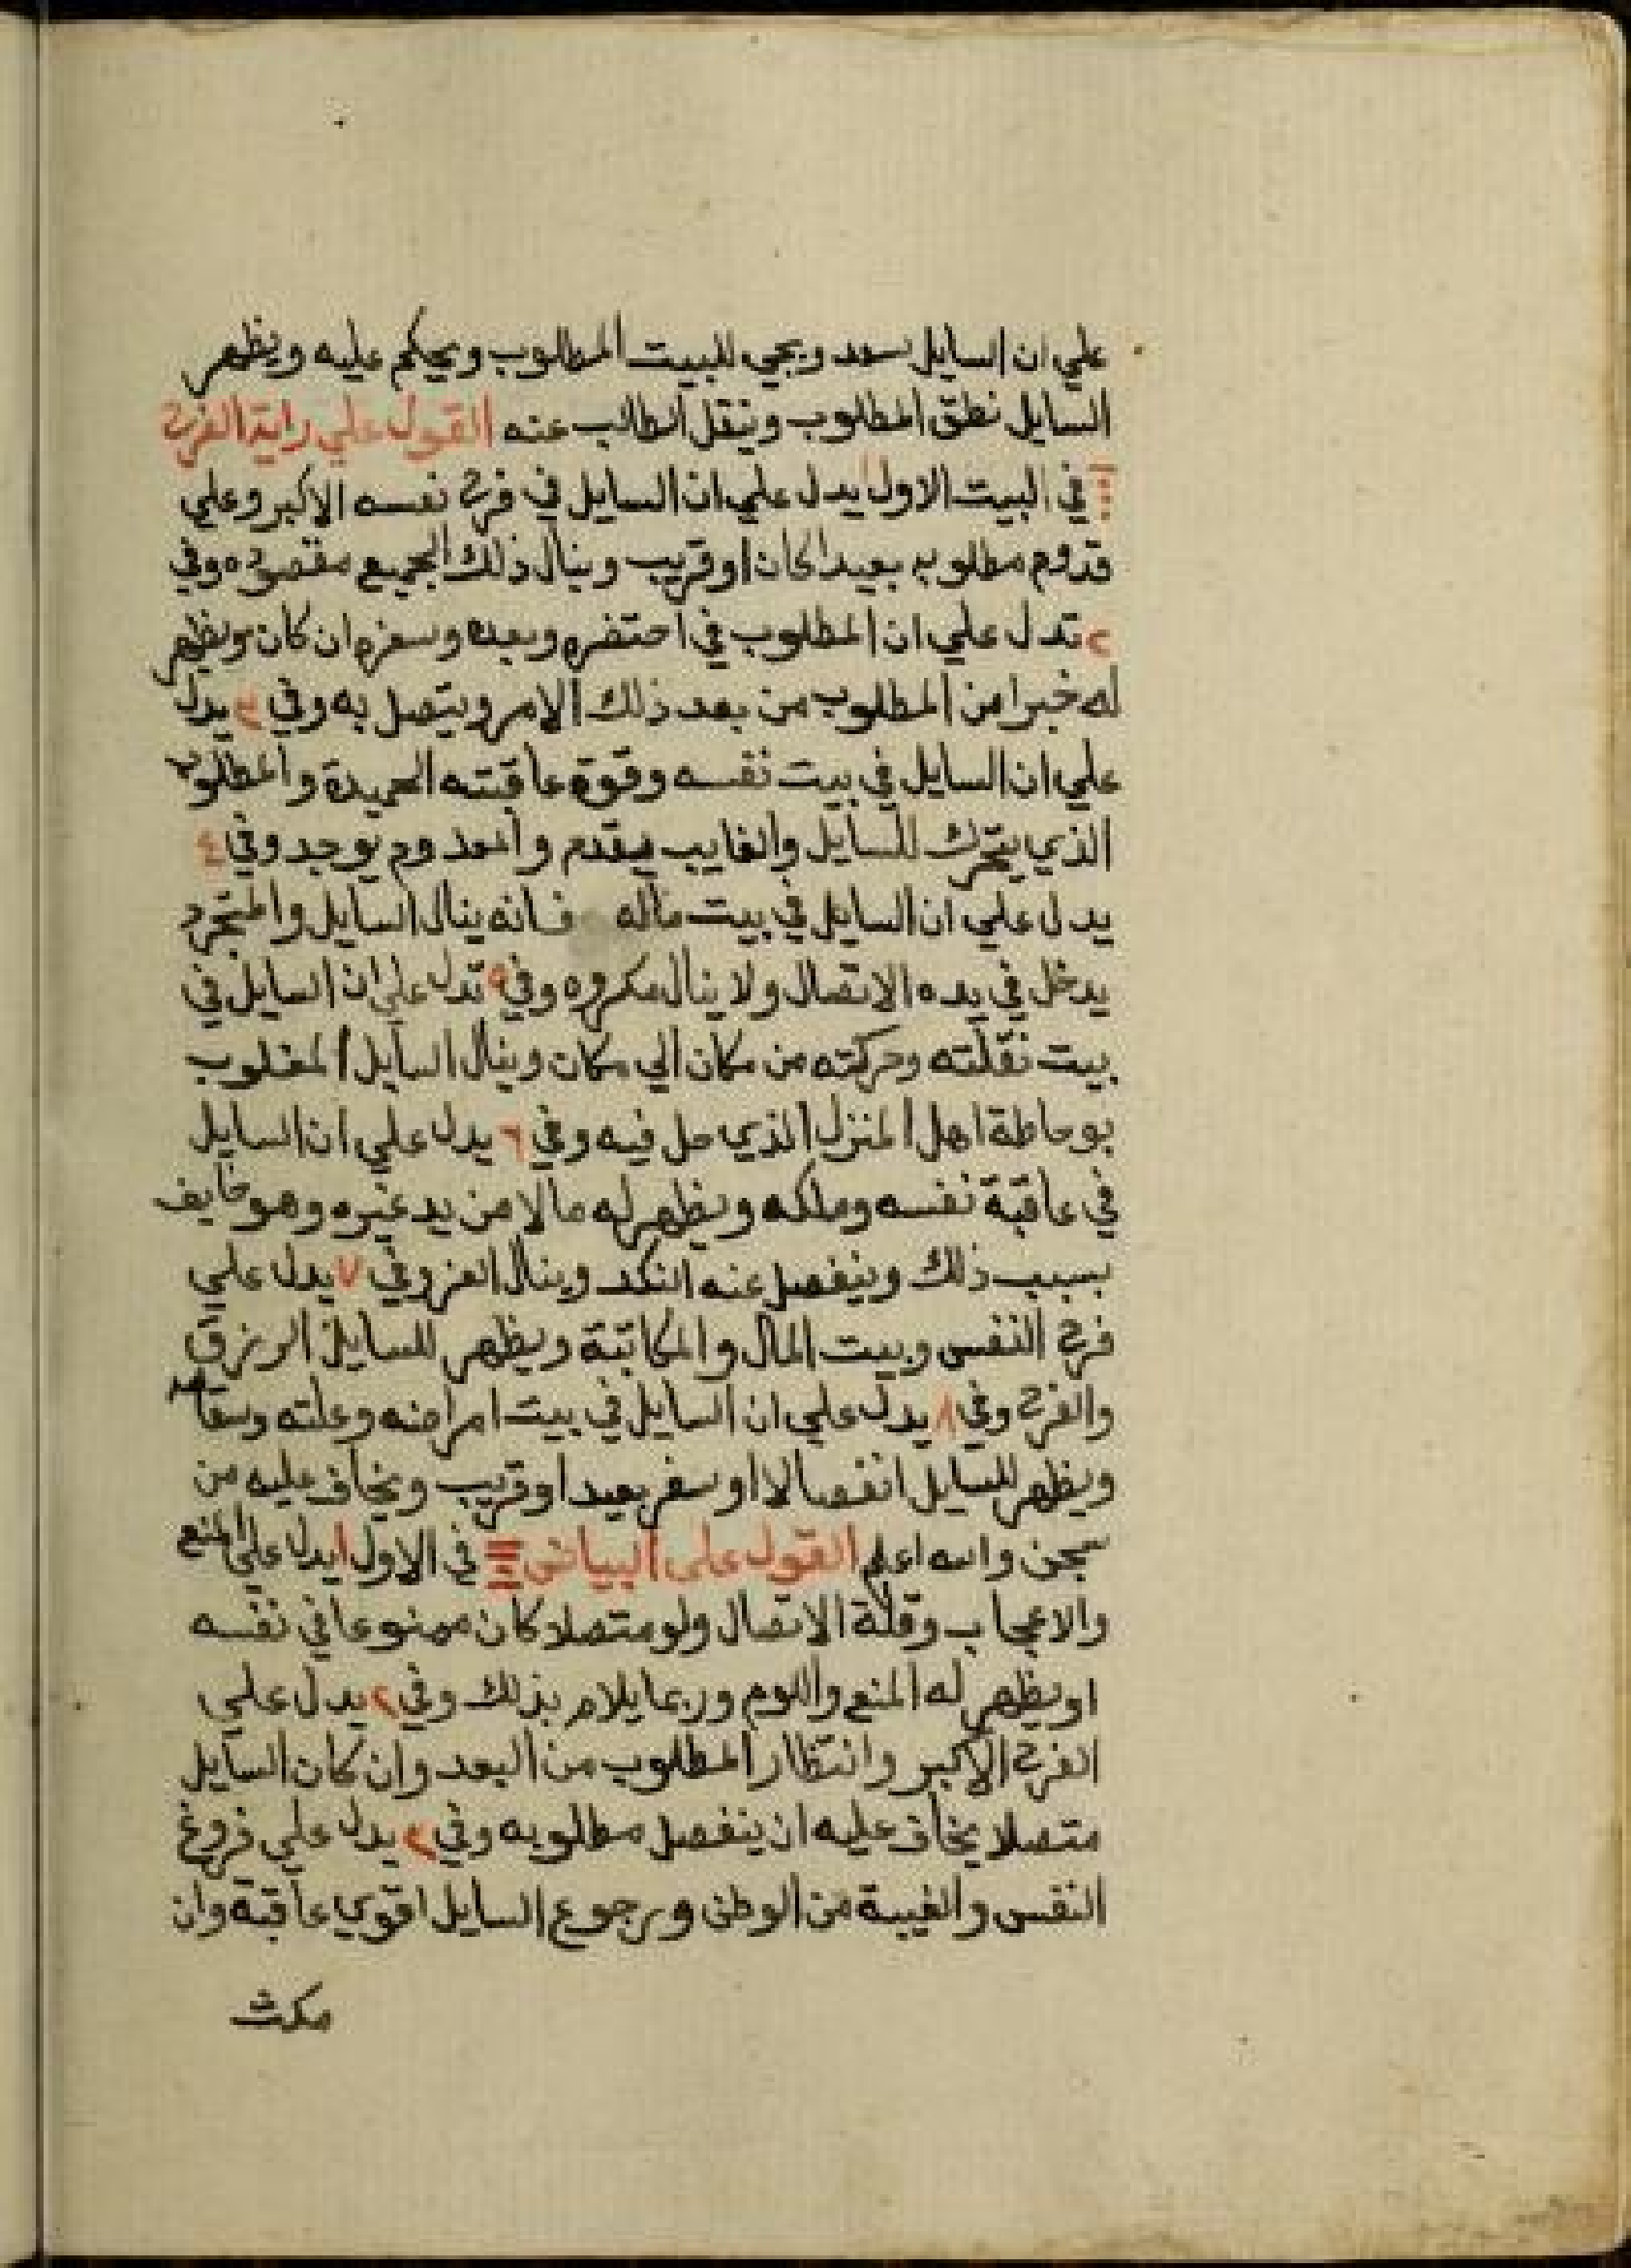 علي ان السايل يسعد ويجي للبيت المطلوب ويحكم عليه ويظهر
السايل نطق المطلوب وينقل الطالب عنه القول علي راية الفرح
في البيت الاول يدل علي ان السايل في فرح نفسه الاكبر وعلي
قدوم مطلوبه بعيدا كان او قريب وينال ذلك الجميع مقصوده وفي
٢ تدل علي ان المطلوب في وبعده وسفره ان كان ويظهر
له خبرا من المطلوب من بعد ذلك الامر ويتصل به وفي ٣ يدل
علي ان السايل في بيت نفسه وقوة عاقبته الحميدة والمطلوب
الذي يتحرك للسايل والغايب يقدم والمعدوم يوجد وفي ٤
يدل علي ان السايل في بيت ماله فانه ينال السايل والمتجرد
يدخل في يده الاتصال ولا ينال مكروه وفي ٥ تدل علي ان السايل في
بيت نقلته وحركته من مكان الي مكان وينال السايل المغلوب
اهل المنزل الذي حل فيه وفي ٦ يدل علي ان السايل
في عاقبة نفسه وملكه ويظهر له مالا من يد غيره وهو خايف
بسبب ذلك وينفصل عنه النكد وينال العز وفي ٧ يدل علي
فرح النفس وبيت المال والمكاتبة ويظهر للسايل الرزق
والفرح وفي ٨ يدل علي ان السايل في بيت امراضه وعلته وسقامه
ويظهر للسايل انفصالا او سفر بعيد او قريب ويخاف عليه من
سجن والله اعلم القول علي البياض في الاول ايدل علي المنع
والاعجاب وقلة الاتصال ولو متصلا كان ممنوعا في نفسه
او يظهر له المنع واللوم وربما يلام بذلك وفي ٢ يدل علي
الفرح الاكبر وانتظار المطلوب من البعد وان كان السايل
متصلا يخاف عليه ان ينفصل مطلوبه وفي ٣ يدل علي فروغ
النفس والغيبة من الوطن ورجوع السايل اقوي عاقبة وان
مكث